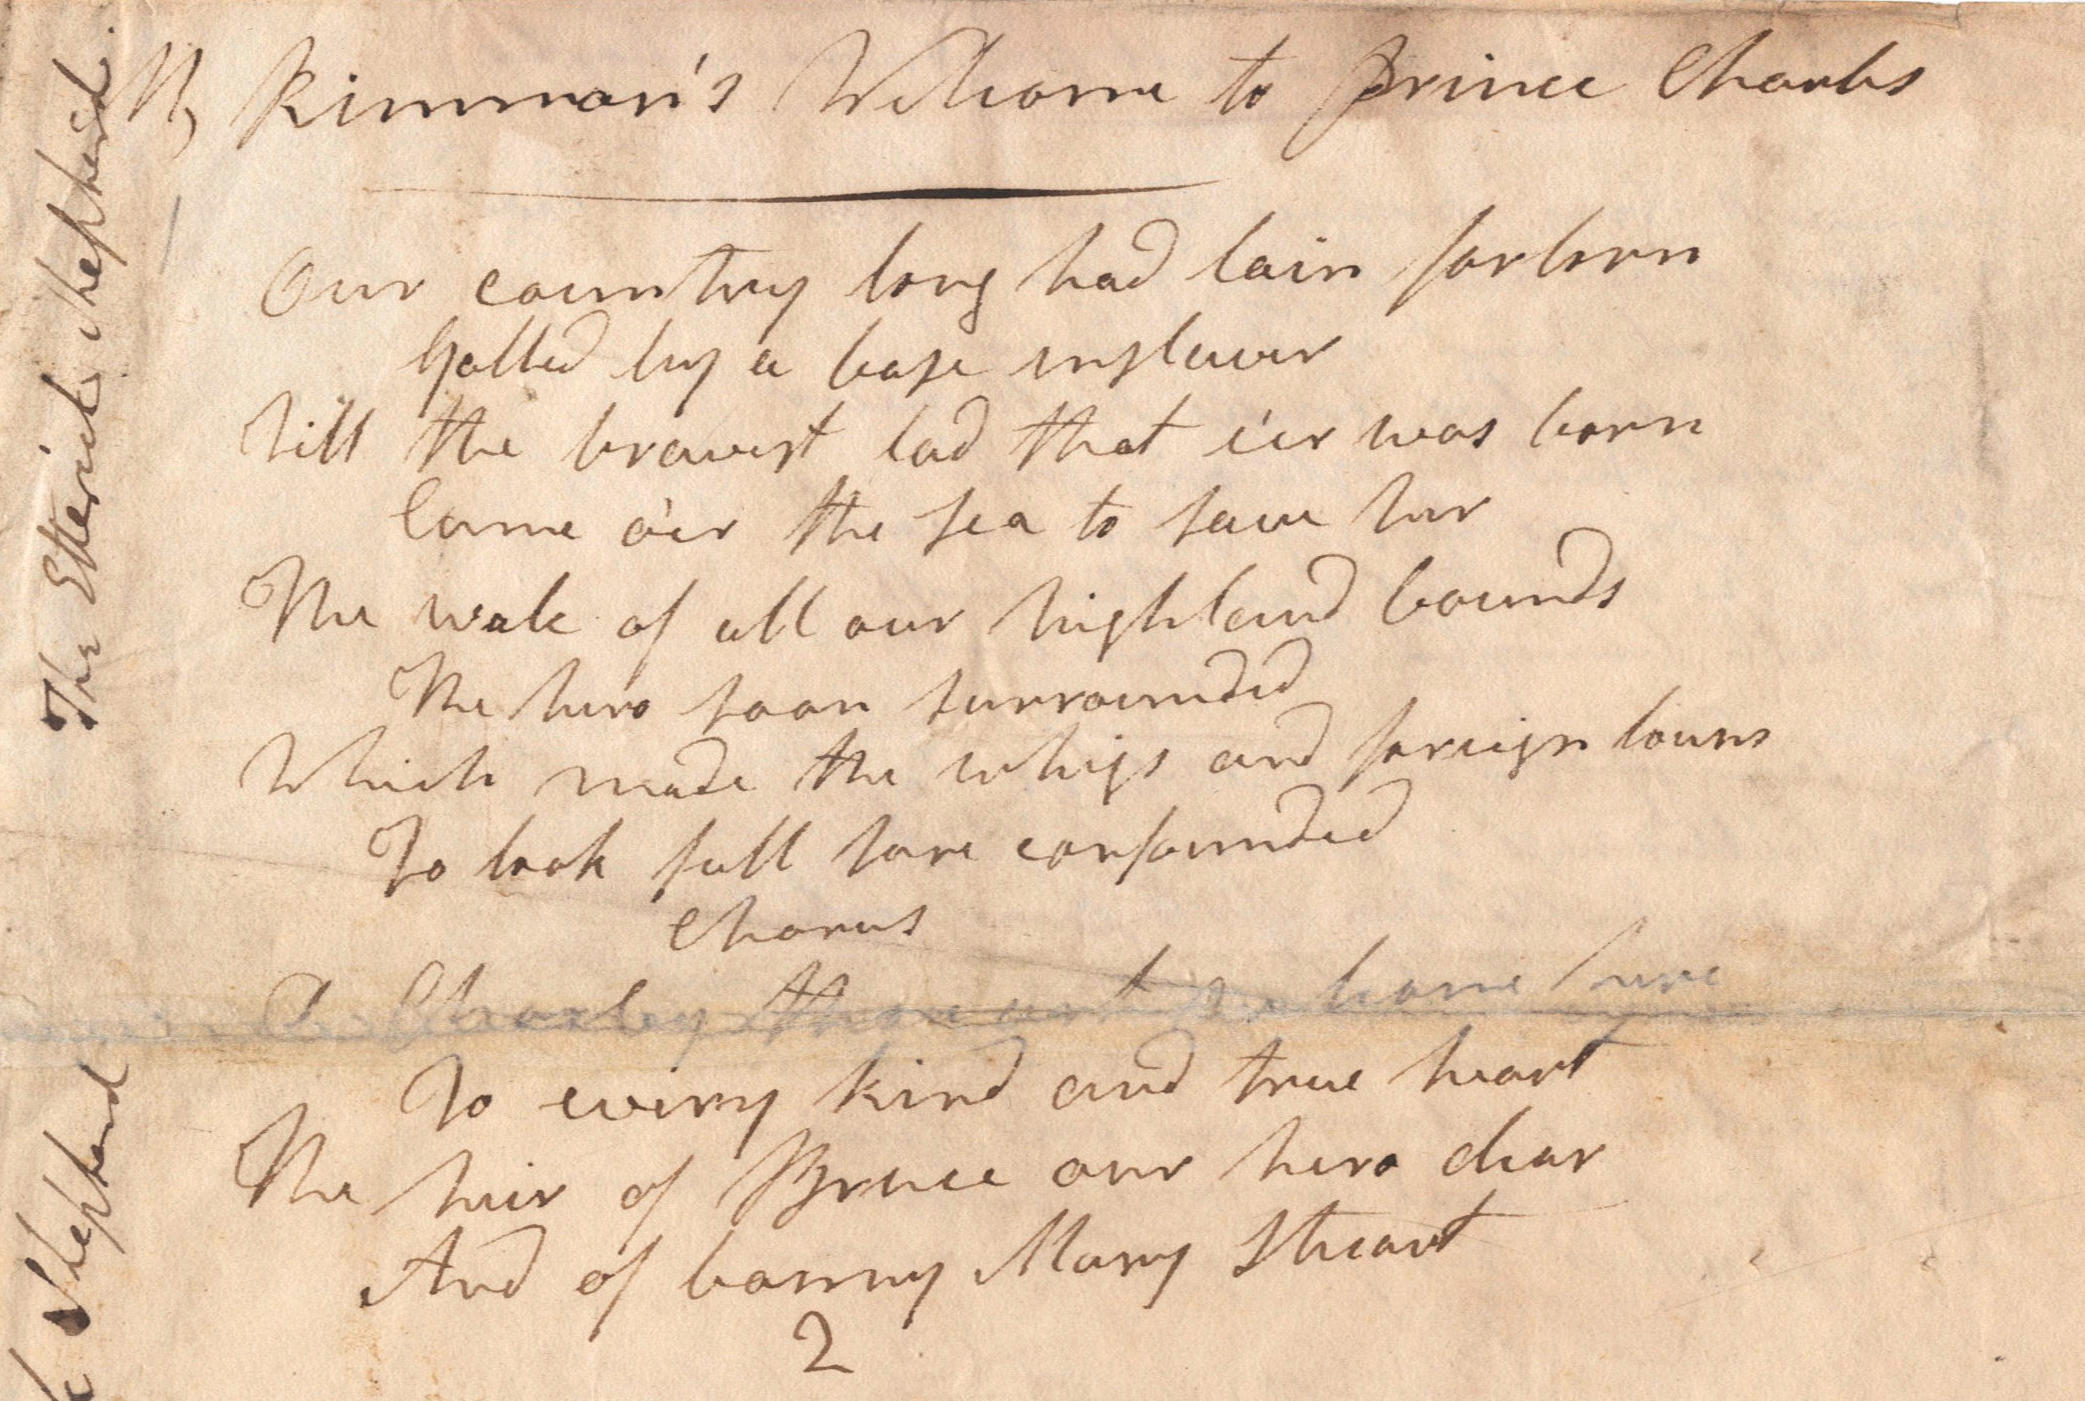 Mc Kimman's Welcome to Prince Charles
Our country long had lain forlorn
Galled by a base inslaver
Till the bravest lad that e'er was born
Came o'er the sea to save her
The wale of all our highland bounds
The hero soon surrounded
Which made the whigs and foreign louns
To look full sore confounded
Chorus
O Charley thou art home here
To every kind and true heart
The heir of Bruce our hero dear
And of bonny Mary Stuart
2
The Etterick Shepherd.
Shepherd